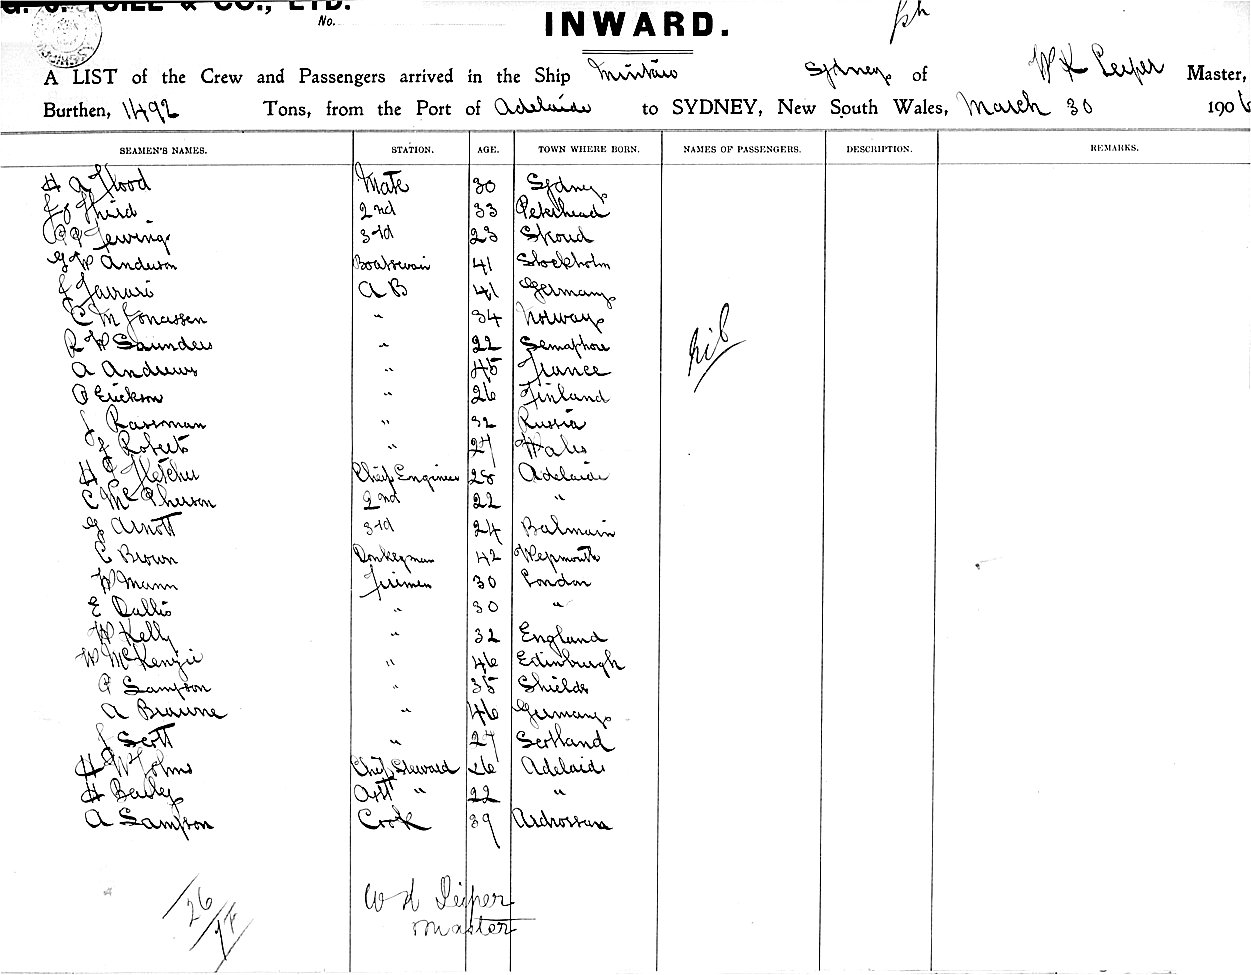 No.
INWARD.
A LIST of the Crew and Passengers arrived in the Ship Mintaro Sydney of W K Leiper Master,
Burthen, 1492 Tons, from the Port of Adelaide to SYDNEY, New South Wales, March 30 1906
SEAMEN'S NAMES. STATION. AGE. TOWN WHERE BORN. NAMES OF PASSENGERS. DESCRIPTION. REMARKS.
H A Flood Mate 30 Sydney
Third 2nd 33 Peterhead
Fewings 3rd 23 Stroud
G W Anderson Boatswain 41 Stockholm
J Farrari A B 41 Germany
C M Jonassen " 34 Norway
R W Saunders " 22 Semaphore
A Andrews " 45 France
P Erickson " 26 Finland
J Rassman " 32 Russia
J Roberts " 27 Wales
H C Fletcher Chief Engineer 28 Adelaide
C McPherson 2nd 22 "
G Arnott 3rd 24 Balmain
C Brown Donkeyman 42 Weymouth
W Mann Firemen 30 London
E Dallis " 30 "
W Kelly " 32 England
W McKenzie " 46 Edinburgh
P Sampson " 35 Shields
A Braune " 46 Germany
J Scott " 27 Scotland
H W Johns Chief Steward 26 Adelaide
H Bailey Asst " 22 "
A Sampson Cook 39 Ardrossan
nil
26
W K Leiper
Master